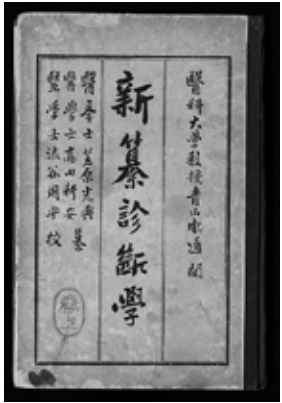 醫科大學教授青山胤通閲
新纂診斷學
醫學士笠原光興
醫學士高田耕安纂
醫學士澁谷周平校